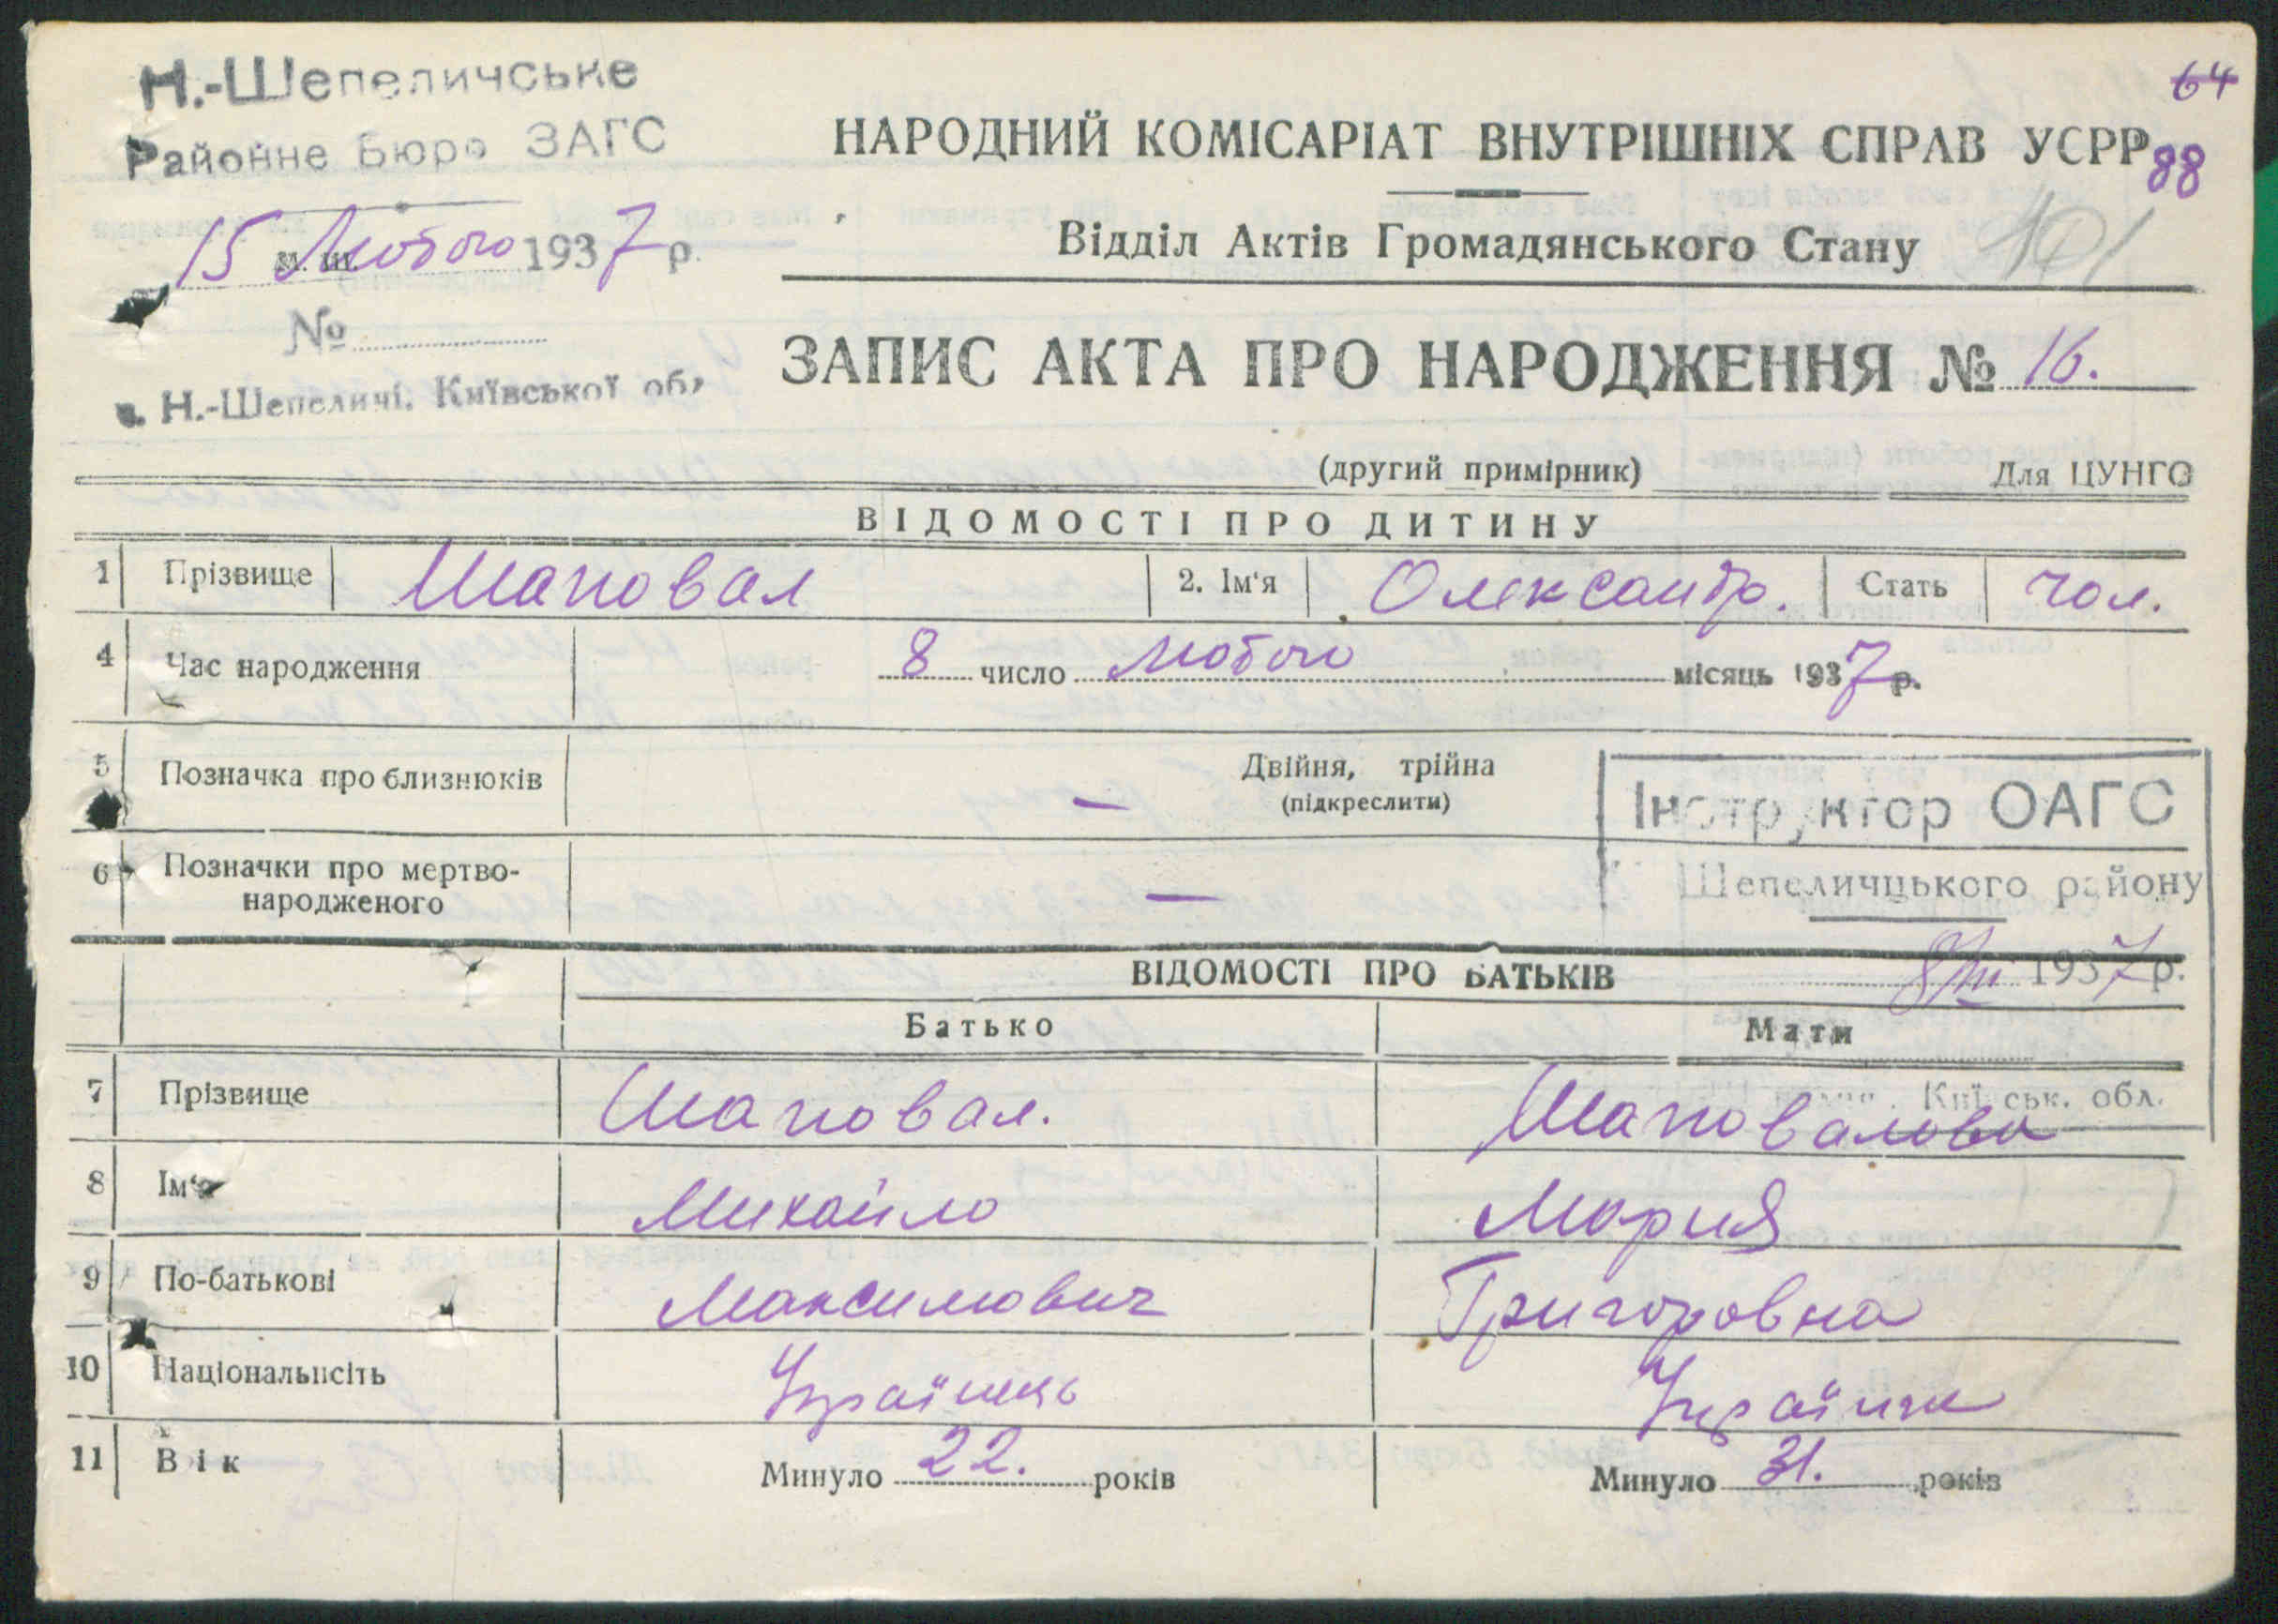 Н.-Шепеличське
Районне Бюро ЗАГС
15 Лютого 1937 р.
№
с. Н.-Шепеличі, Київської обл
64
88
101
НАРОДНИЙ КОМІСАРІАТ ВНУТРІШНІХ СПРАВ УСРР
Відділ Актів Громадянського Стану
ЗАПИС АКТА ПРО НАРОДЖЕННЯ № 16.
(другий примірник) Для ЦУНГО
ВІДОМОСТІ ПРО ДИТИНУ
1 Прізвище Шаповал 2. Ім'я Олександр. Стать чол.
4 Час народження 8 число Лютого місяць 1937 р.
5 Позначка про близнюків — Двійня, трійна
(підкреслити)
6 Позначки про мертво-
народженого —
Інструктор ОАГС
Шепеличцького району
8/III 1937 р.
Київськ. обл.
ВІДОМОСТІ ПРО БАТЬКІВ
Батько Мати
7 Прізвище Шаповал. Шаповалова
8 Ім'я Михайло Мария
9 По-батькові Максимович Григоровна
10 Національнсіть Українець Українка
11 Вік Минуло 22. років Минуло 31. років